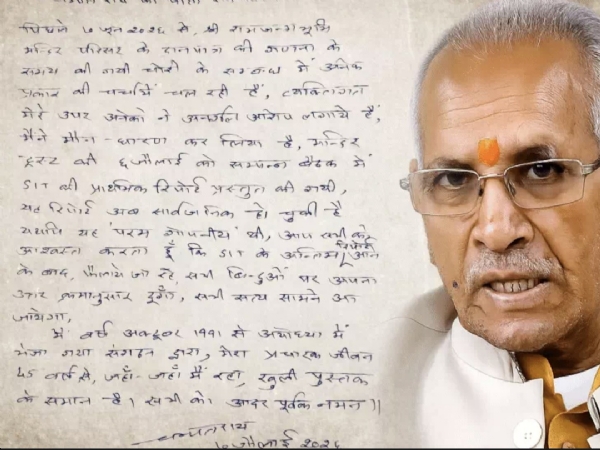 पिछले ७ जून २०२६ से, श्री रामजन्मभूमि
मन्दिर परिसर के दानपात्र की गणना के
समय की गयी चोरी के सम्बन्ध में अनेक
प्रकार की चर्चायें चल रही हैं, व्यक्तिगत
मेरे उपर अनेकों ने अनर्गल आरोप लगाये हैं,
मैंने मौन-धारण कर लिया है, मन्दिर
ट्रस्ट की ६ जौलाई को सम्पन्न बैठक में
SIT की प्राथमिक रिपोर्ट प्रस्तुत की गयी,
यह रिपोर्ट अब सार्वजनिक हो चुकी है
यद्यपि यह 'परम गोपनीय' थी, आप सभी को
आश्वस्त करता हूँ कि SIT के अन्तिम रिपोर्ट आने
के बाद, फैलाये जा रहे सभी बिन्दुओं पर अपना
उत्तर क्रमानुसार दूँगा, सभी सत्य सामने आ
जायेगा,
मैं वर्ष अक्टूबर 1991 से अयोध्या में
भेजा गया संगठन द्वारा, मेरा प्रचारक जीवन
45 वर्ष से, जहाँ-जहाँ मैं रहा, खुली पुस्तक
के समान है। सभी को आदर पूर्वक नमन॥
चम्पतराय
७ जौलाई २०२६